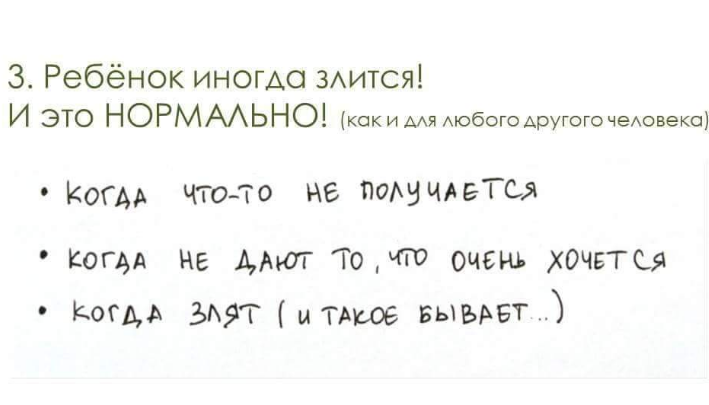 3. Ребёнок иногда злится!
И это НОРМАЛЬНО! (как и для любого другого человека)
• КОГДА ЧТО-ТО НЕ ПОЛУЧАЕТСЯ
• КОГДА НЕ ДАЮТ ТО, ЧТО ОЧЕНЬ ХОЧЕТСЯ
• КОГДА ЗЛЯТ (И ТАКОЕ БЫВАЕТ...)